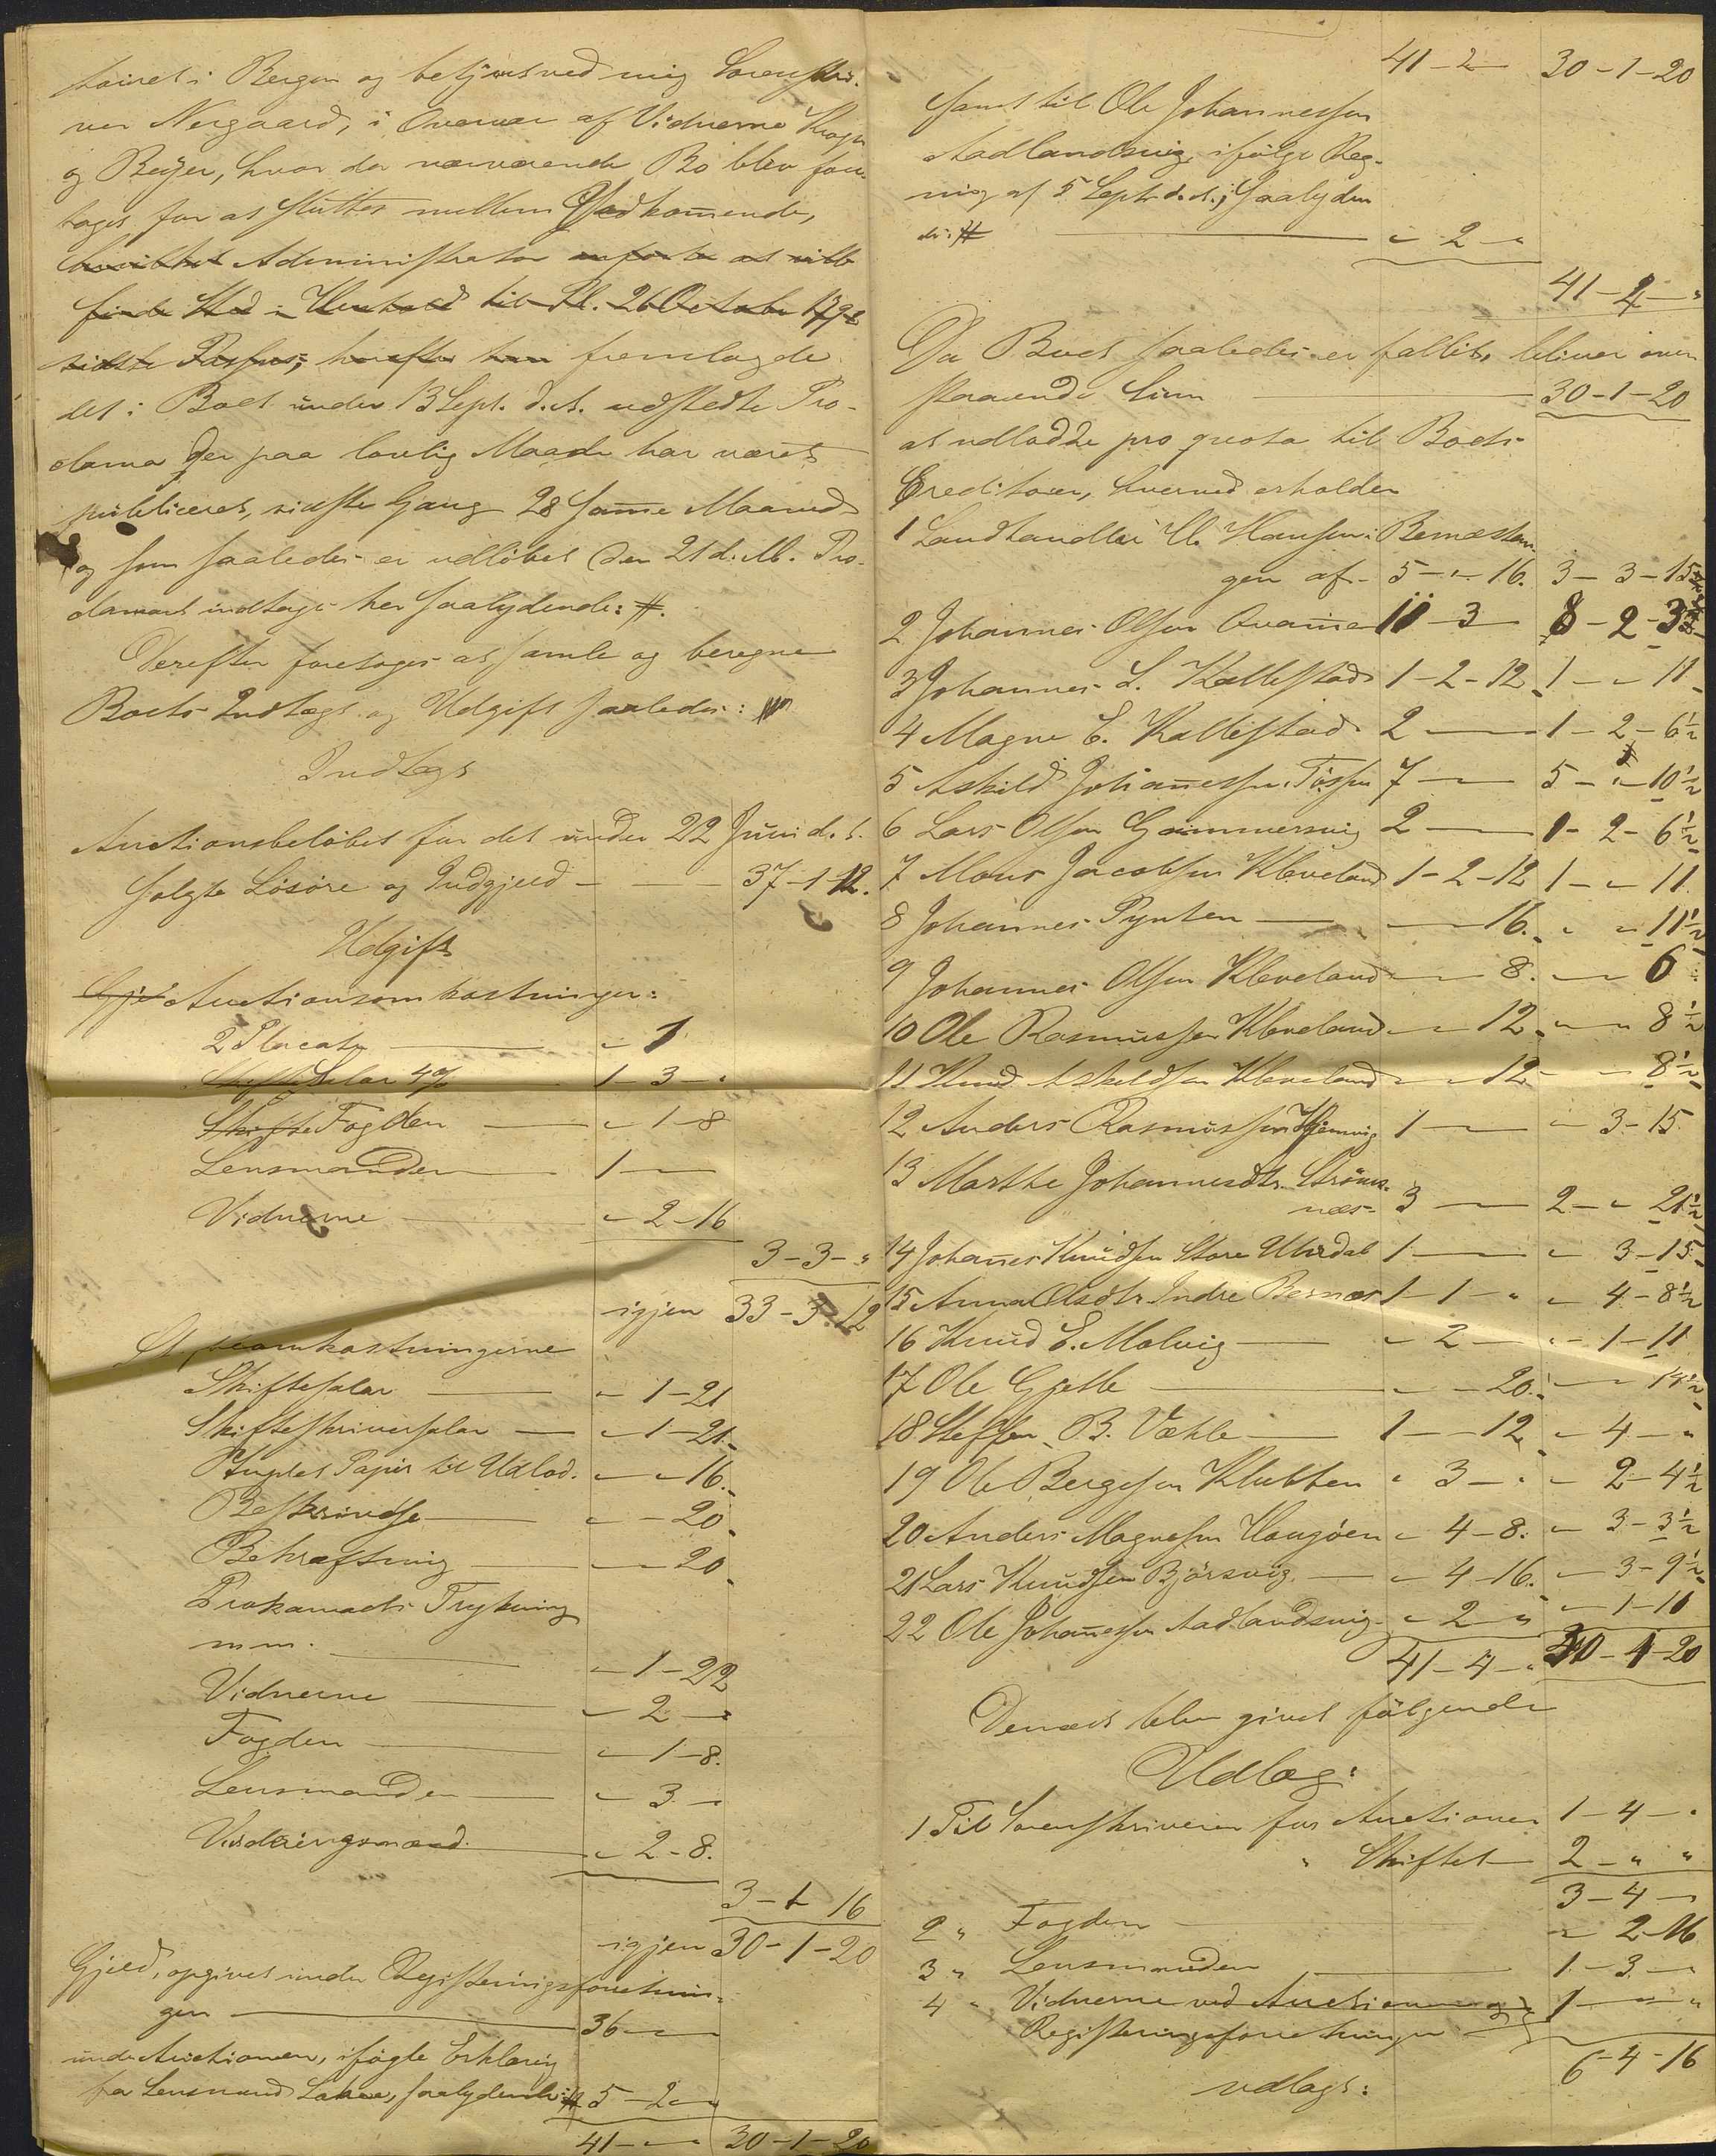 toiret i Bergen og betjent ved mig Sorenskri-
ver Nergaard, i Overvær af Vidnerne Krogh
og Beyer, hvor da nærværende Bo blev fore-
taget for at sluttes mellem Vedkommende,
hvorefter Administrator anførte at ville
finde Sted i Henhold til Pl. 26 October 1798
sidste Passus; hvorefter han fremlagde
det i Boet under 13 Sept. d.A. udstedte Pro-
clama der paa lovlig Maade har været
publiceret, sidste Gang 28 samme Maaned
og som saaledes er udløbet den 21 d.M. Pro-
clamaet indtages her saalydende: #.
Derefter foretoges at samle og beregne
Boets Indtægt og Udgift saaledes:
Indtægt
Auctionsbeløbet for det under 22 Juni d.A.
solgte Løsøre og Indgjeld — 37-1-12.
Udgift
Auctionsomkostninger:
2 Placater — " 1
Salar 4% 1-3-"
Skifte Fogden — " 1-8
Lensmanden — 1 —
Vidnerne — " 2-16
3-3-"
igjen 33-3-12
omkostningerne
Skiftesalar — " 1-21
Skifteskriversalar — " 1-21
Stemplet Papir til Udlod. " " 16
Beskrivelse — " " 20
Bekræftning — " 20
Proklamaets Trykning
m.m. — " 1-22
Vidnerne — " 2 "
Fogden — " 1-8.
Lensmanden — " 3 "
Vurderingsmænd — " 2-8.
3-1-16
igjen 30-1-20
Gjeld, opgivet under Registeringsforretnin-
gen — 36 "
under Auctionen, ifølge Erklæring
fra Lensmand saalydende: # 5-2 "
41 — " 30-1-20
41-2 30-1-20
samt til Ole Johannessen
Aadlandsvig, ifølge Reg-
ning af 5 Septr. d.A., saalyden
de: # — " 2 "
41-4-"
Da Boet saaledes er fallit, bliver oven
staaende Sum — 30-1-20
at udlodde pro quota til Boets
Creditorer, hvorved erholder
1 Landhandler H. Hansen i Bernæstan-
gen af 5-"-16. 3-3-15
2 Johannes Olsen Qvamme 11-3 8-2-3½
3 Johannes L. Kallestad 1-2-12 1-"-11
4 Magne E. Kallestad 2 — 1-2-6½
5 Askild Johannessen Tøssen 7 — 5-"-10½
6 Lars Olsen Gammersvig 2 — 1-2-6½
7 Mons Jacobsen Kleveland 1-2-12 1-"-11
8 Johannes Pynten — 16. " " 11½
9 Johannes Olsen Kleveland — 8. — 6
10 Ole Rasmussen Kleveland — 12 " " 8½
11 Knud Askeldsen Kleveland " 12 — 8½
12 Anders Rasmussen 1 — " 3-15
13 Marthe Johannesdtr. Strøm-
næs 3 — 2-"-21½
14 Johannes Knudsen Store Urdal 1 — " 3-15
15 Anna Olsdtr Indre Bernæs 1-1-" " 4-8½
16 Knud E. Molvig — " 2 " " 1-11
17 Ole Gjelle — " " 20. — 14½
18 Steffen B. Væhle — 1 — 12 " 4-"
19 Ole Bergesen Klubben " 3-" " 2-4½
20 Anders Magnesen Haugøen " 4-8. " 3-3½
21 Lars Knudsen Bjørsvig — " 4-16. " 3-9½
22 Ole Johannessen Aadlandsvig " 2 " " 1-11
41-4-" 30-1-20
Dernæst blev givet følgende
Udlæg:
1 Til Sorenskriveren for Auctionen 1-4-"
" Skiftet — 2-" "
3-4-"
2 " Fogden — " 2-16
3 " Lensmanden — 1-3-"
4 " Vidnerne ved Auctionen og 1 — "
Registeringsforretningen
6-4-16
udlagt: